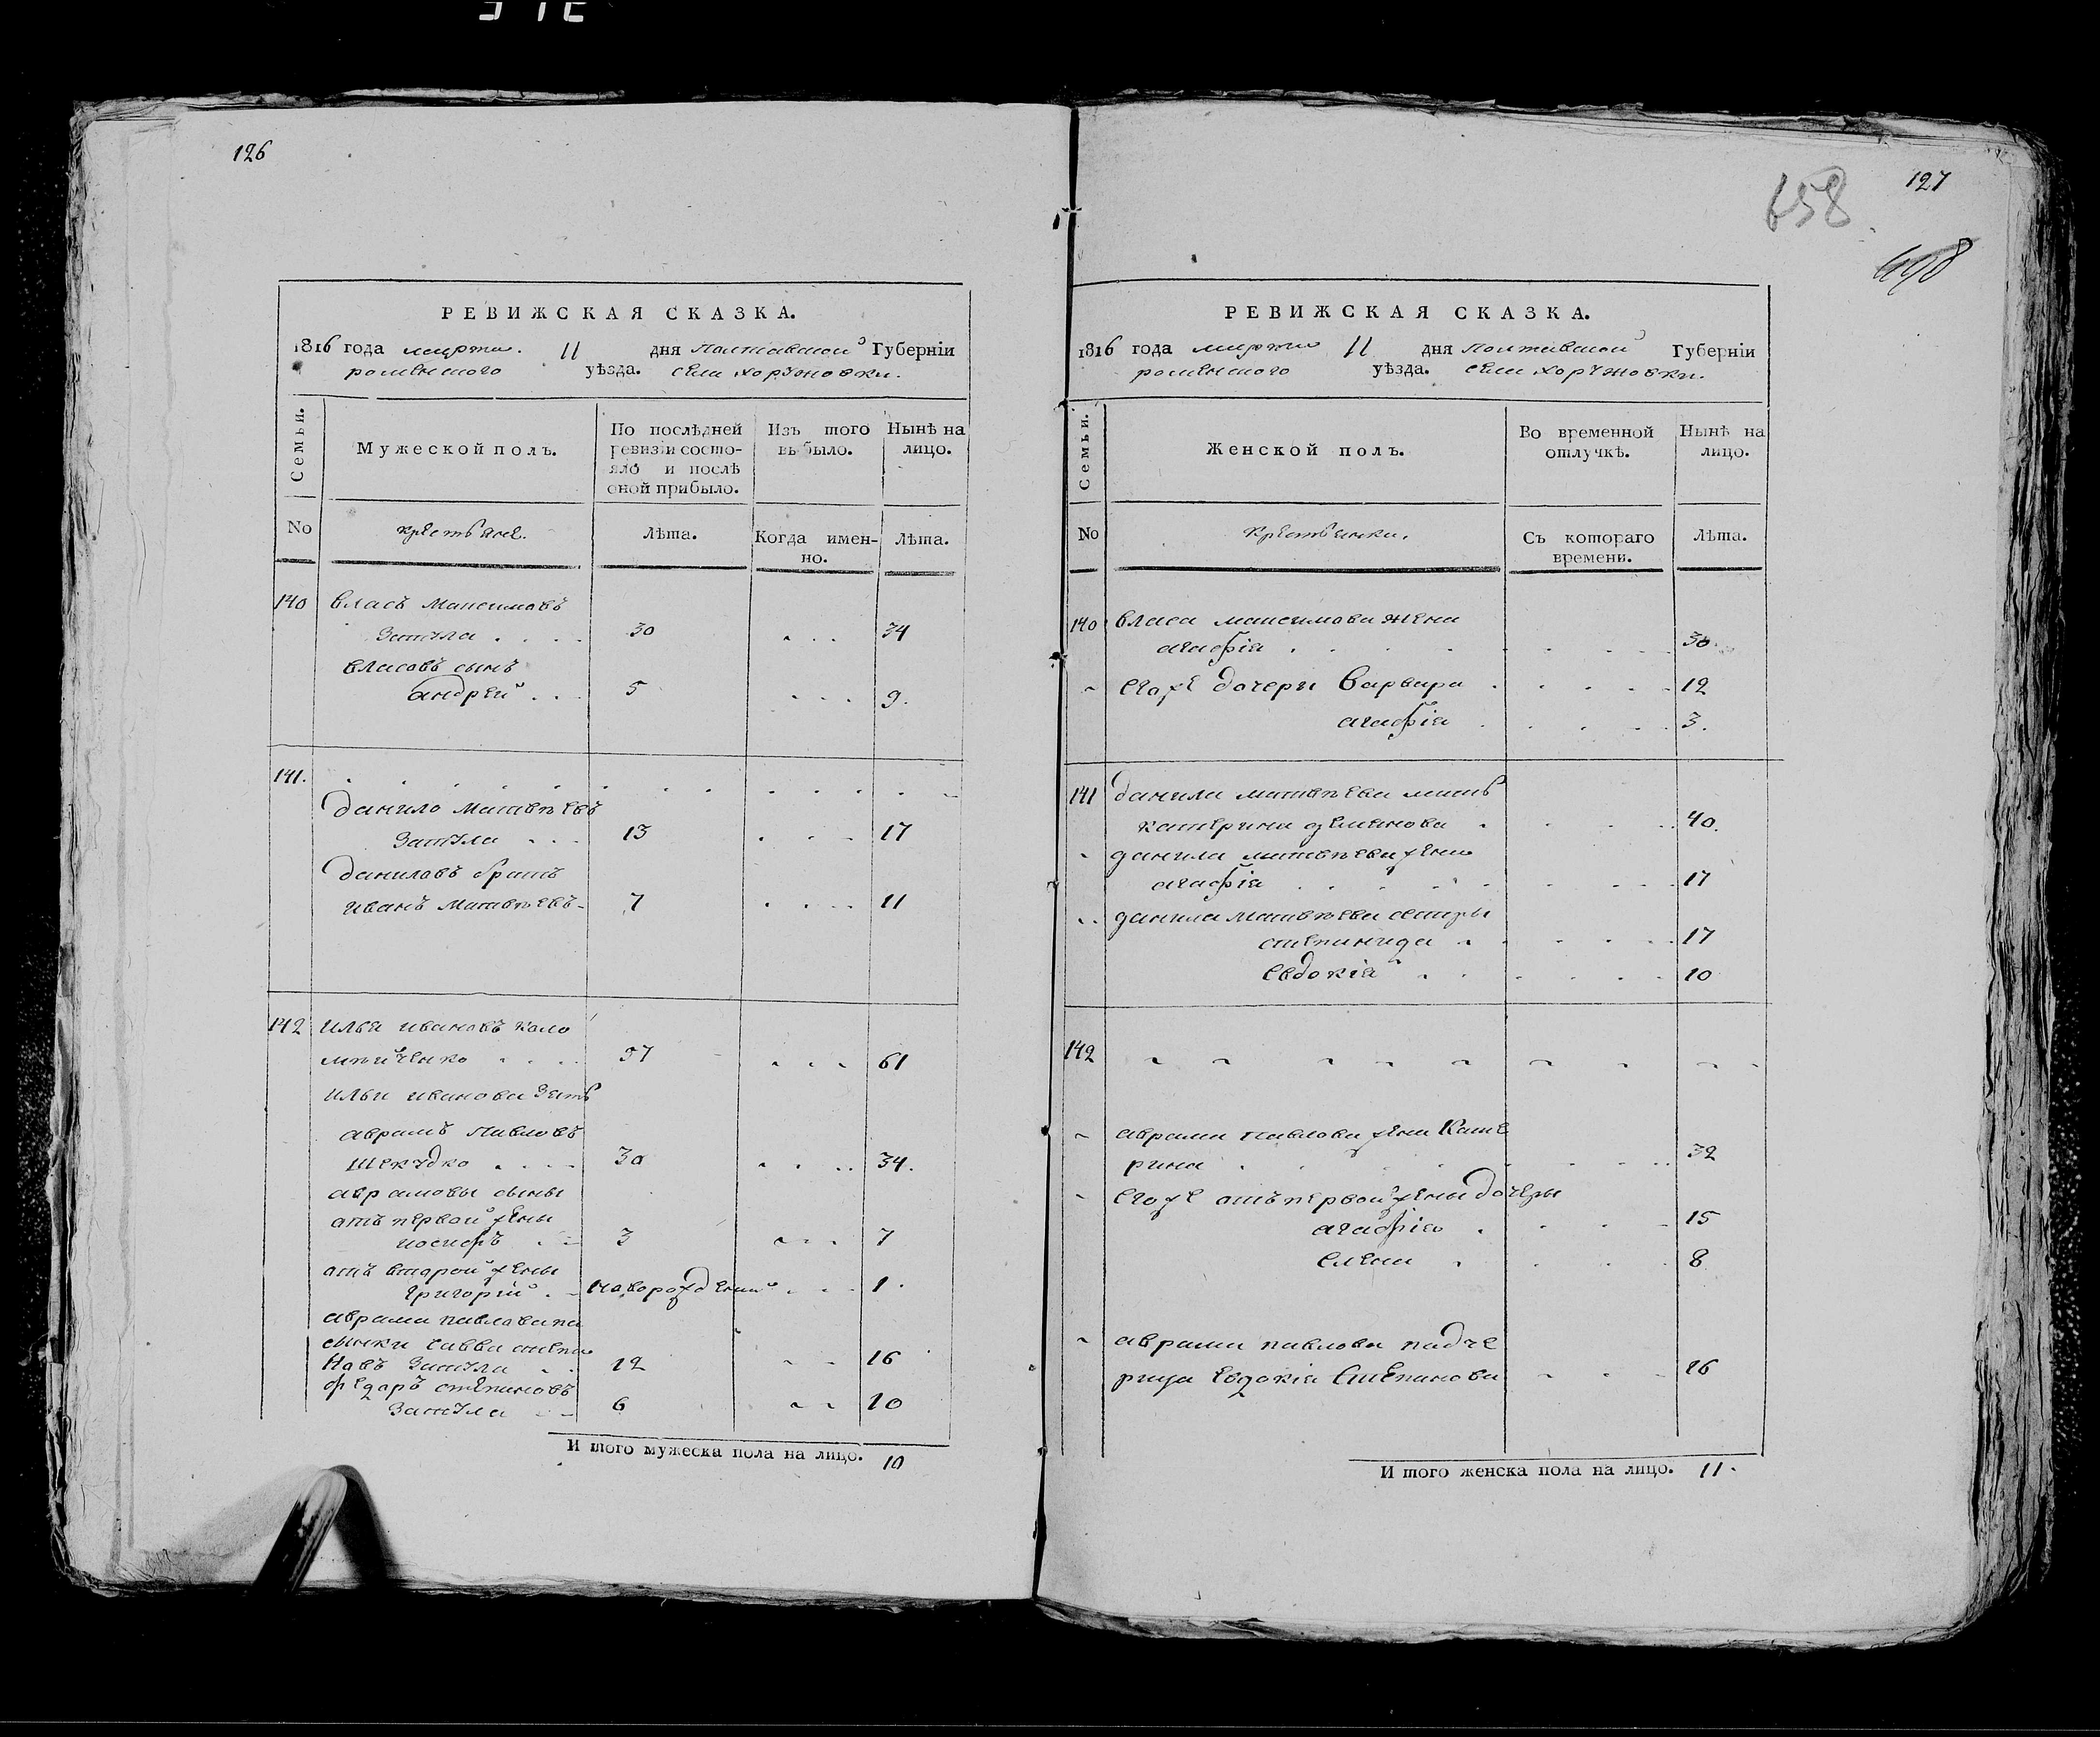 126
РЕВИЖСКАЯ СКАЗКА.
1816 года марта. 11 дня Полтавской Губерніи
роменского уѣзда. села хоружовки.
Семьи.
Мужеской полъ.
По послѣдней ревизіи состояло и послѣ оной прибыло.
Изъ того выбыло.
Нынѣ на лицо.
No
крестьяне.
Лѣта.
Когда именно.
Лѣта.
140 власъ Максимовъ
Затула 30 34
власовъ сынъ
андрей 5 9.
141.
данило Матвѣевъ
Затула 13 17
даниловъ братъ
иванъ Матвѣевъ 7 11
142 илья ивановъ коло
мѣйченко 57 61
ильи иванова зять
аврамъ Павловъ
Шекудко 30 34.
аврамовы сыны
отъ первой жены
иосифъ 3 7
отъ второй жены
григорій новорожденный 1.
аврама павлова па
сынки савва степа
новъ Затула 12 16
федоръ степановъ
Затула 6 10
И того мужеска пола на лицо. 10
127
658
РЕВИЖСКАЯ СКАЗКА.
1816 года марта 11 дня Полтавской Губерніи
роменского уѣзда. села хоружовки.
Семьи.
Женской полъ.
Во временной отлучкѣ.
Нынѣ на лицо.
No
крестьянки.
Съ котораго времени.
Лѣта.
140 власа максимова жена
агафія 30.
его же дочери варвара 12
агафія 3.
141 данила матвѣева мать
катерина 40.
данила матвѣева жена
агафія 17
данила матвѣева сестры
степанида 17
евдокія 10
142
аврама павлова жена Кате
рина 32
его же отъ первой жены дочеры
агафія 15
елена 8
аврама павлова падче
рица евдокія Степанова 16
И того женска пола на лицо. 11.